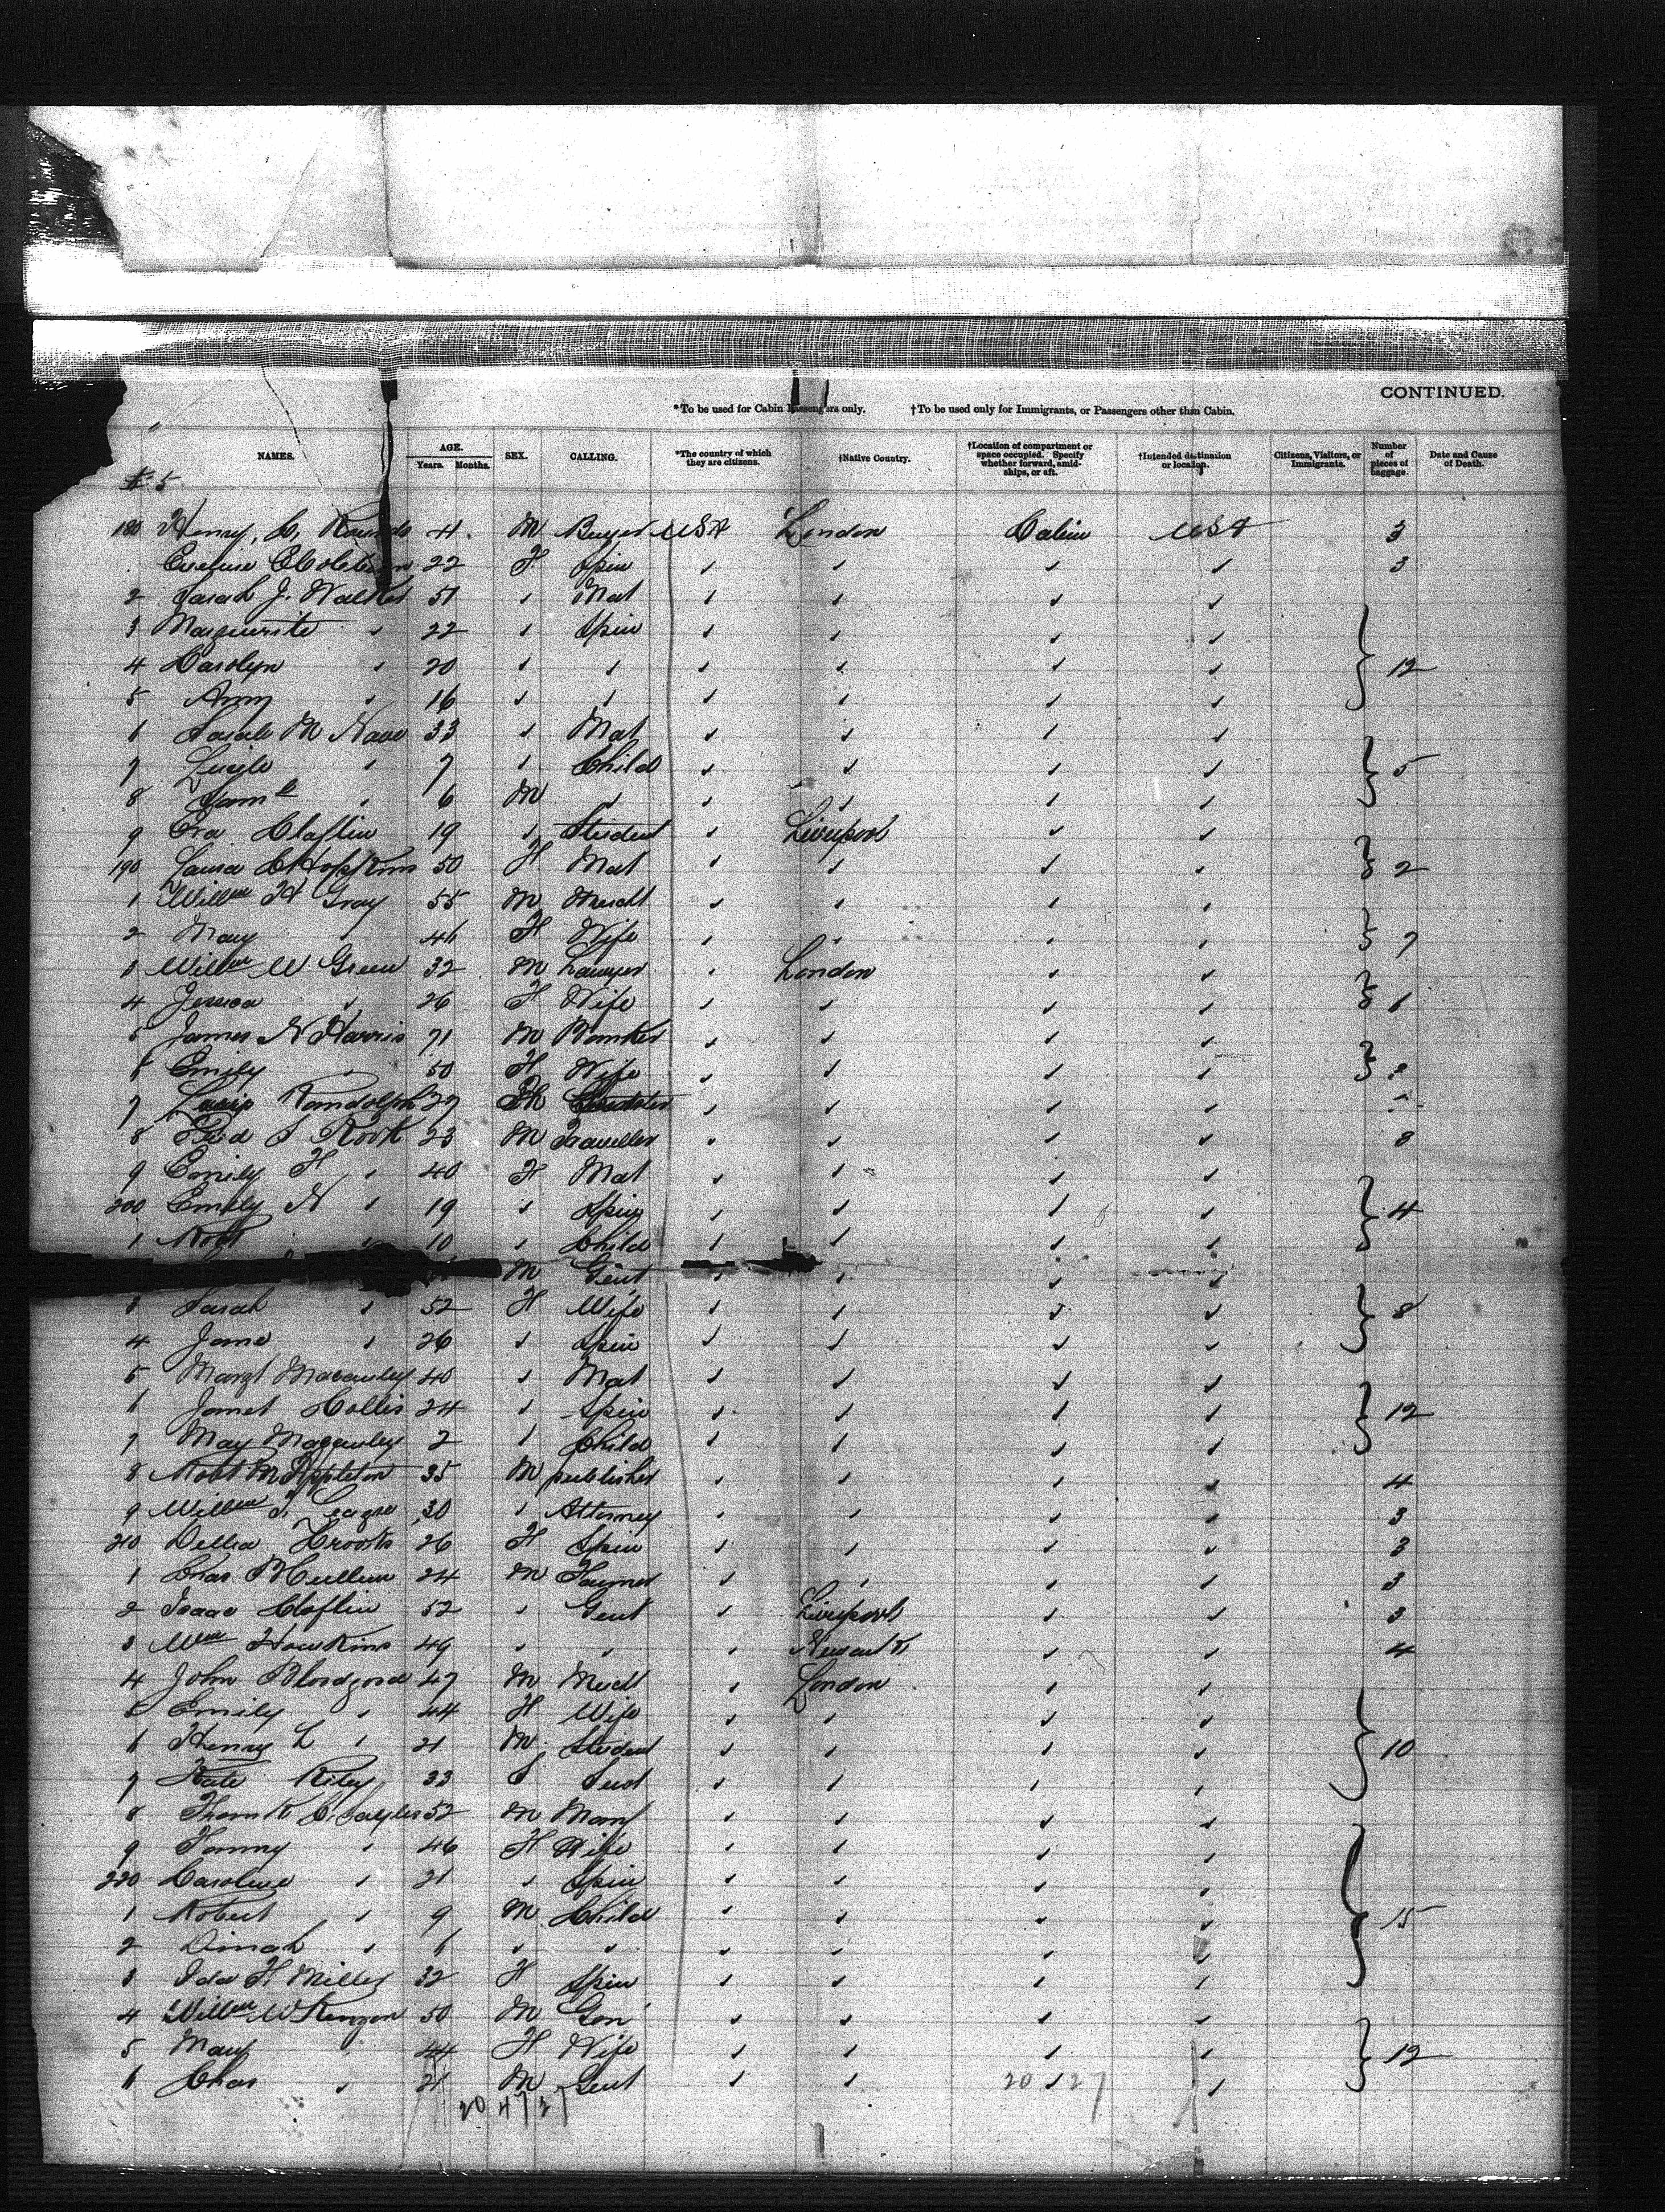 CONTINUED.
*To be used for Cabin Passengers only. †To be used only for Immigrants, or Passengers other than Cabin.
NAMES. AGE. Years. Months. SEX. CALLING. *The country of which they are citizens. †Native Country. †Location of compartment or space occupied. Specify whether forward, amid-ships, or aft. †Intended destination or location. Citizens, Visitors, or Immigrants. Number of pieces of baggage. Date and Cause of Death.
5
180 Henry, C, 4. M Buyer USA London Cabin USA 3
22 F Spin ✓ ✓ ✓ ✓ 3
2 Sarah J. Walker 51 ✓ Mat ✓ ✓ ✓ ✓
3 Marguerite ✓ 22 ✓ Spin ✓ ✓ ✓ ✓
4 Carolyn ✓ 20 ✓ ✓ ✓ ✓ ✓ ✓ 12
5 Amy ✓ 16 ✓ ✓ ✓ ✓ ✓ ✓
6 Sarah M Nave 33 ✓ Mat ✓ ✓ ✓ ✓
7 Lucile ✓ 7 ✓ Child ✓ ✓ ✓ ✓ 5
8 Saml ✓ 6 M ✓ ✓ ✓ ✓ ✓
9 Eva Claflin 19 ✓ Student ✓ Liverpool ✓ ✓
190 Laura C Hopkins 50 F Mat ✓ ✓ ✓ ✓ 2
1 Willm H Gray 55 M Merdt ✓ ✓ ✓ ✓
2 Mary ✓ 46 F Wife ✓ ✓ ✓ ✓ 7
3 Willm W. Green 32 M Lawyer ✓ London ✓ ✓
4 Jessica ✓ 26 F Wife ✓ ✓ ✓ ✓ 6
5 James N Harris 71 M Banker ✓ ✓ ✓ ✓
6 Emily ✓ 50 F Wife ✓ ✓ ✓ ✓
7 Randolph 27 M ✓ ✓ ✓ ✓
8 Fred S Rook 23 M Traveller ✓ ✓ ✓ ✓ 8
9 Emily F ✓ 40 F Mat ✓ ✓ ✓ ✓
200 Emily N ✓ 19 ✓ Spin ✓ ✓ ✓ ✓ 4
1 Robt ✓ 10 ✓ Child ✓ ✓ ✓ ✓
M Gent ✓ ✓ ✓ ✓
3 Sarah ✓ 52 F Wife ✓ ✓ ✓ ✓ 8
4 Jane ✓ 26 ✓ Spin ✓ ✓ ✓ ✓
5 Margt Macauley 40 ✓ Mat ✓ ✓ ✓ ✓
6 Janet Hollis 24 ✓ Spin ✓ ✓ ✓ ✓ 12
7 May Macauley 2 ✓ Child ✓ ✓ ✓ ✓
8 Robt M Appleton 35 M publisher ✓ ✓ ✓ ✓ 4
9 Willm S. League 30 ✓ Attorney ✓ ✓ ✓ ✓ 3
210 Dellia Brooks 26 F Spin ✓ ✓ ✓ ✓ 3
1 Chas McCullum 24 M Farmer ✓ ✓ ✓ ✓ 3
2 Isaac Claflin 52 ✓ Gent ✓ Liverpool ✓ ✓ 3
3 Wm Hawkins 49 ✓ ✓ ✓ Newark ✓ ✓ 4
4 John Bloodgood 47 M Merdt ✓ London ✓ ✓
5 Emily ✓ 44 F Wife ✓ ✓ ✓ ✓
6 Henry L ✓ 21 M Student ✓ ✓ ✓ ✓ 10
7 Kate Riley 33 F Servt ✓ ✓ ✓ ✓
8 52 M Manf ✓ ✓ ✓ ✓
9 Fanny ✓ 46 F Wife ✓ ✓ ✓ ✓
220 Caroline ✓ 21 ✓ Spin ✓ ✓ ✓ ✓
1 Robert ✓ 9 M Child ✓ ✓ ✓ ✓ 15
2 Dinah ✓ 6 ✓ ✓ ✓ ✓ ✓ ✓
3 Ida F. Miller 32 F Spin ✓ ✓ ✓ ✓
4 Willm W Kenyon 50 M Gen ✓ ✓ ✓ ✓
5 Mary ✓ 44 F Wife ✓ ✓ ✓ ✓ 12
6 Chas ✓ 21 M Gent ✓ ✓ ✓ ✓
20 27
20 47 27